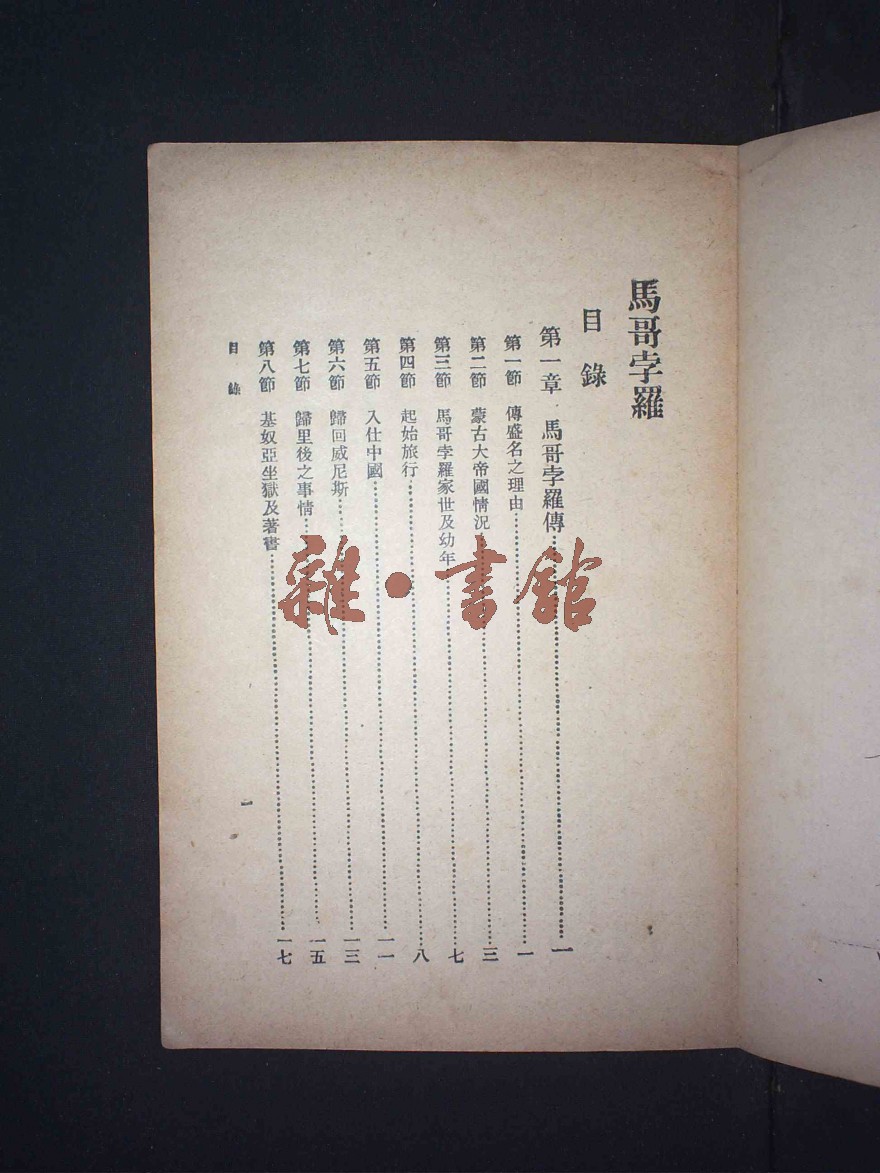 馬哥孛羅
目錄
第一章 馬哥孛羅傳……一
第一節 傳盛名之理由……一
第二節 蒙古大帝國情況……三
第三節 馬哥孛羅家世及幼年……七
第四節 起始旅行……八
第五節 入仕中國……一一
第六節 歸回威尼斯……一三
第七節 歸里後之事情……一五
第八節 基奴亞坐獄及著書……一七
目錄 一
雜·書館